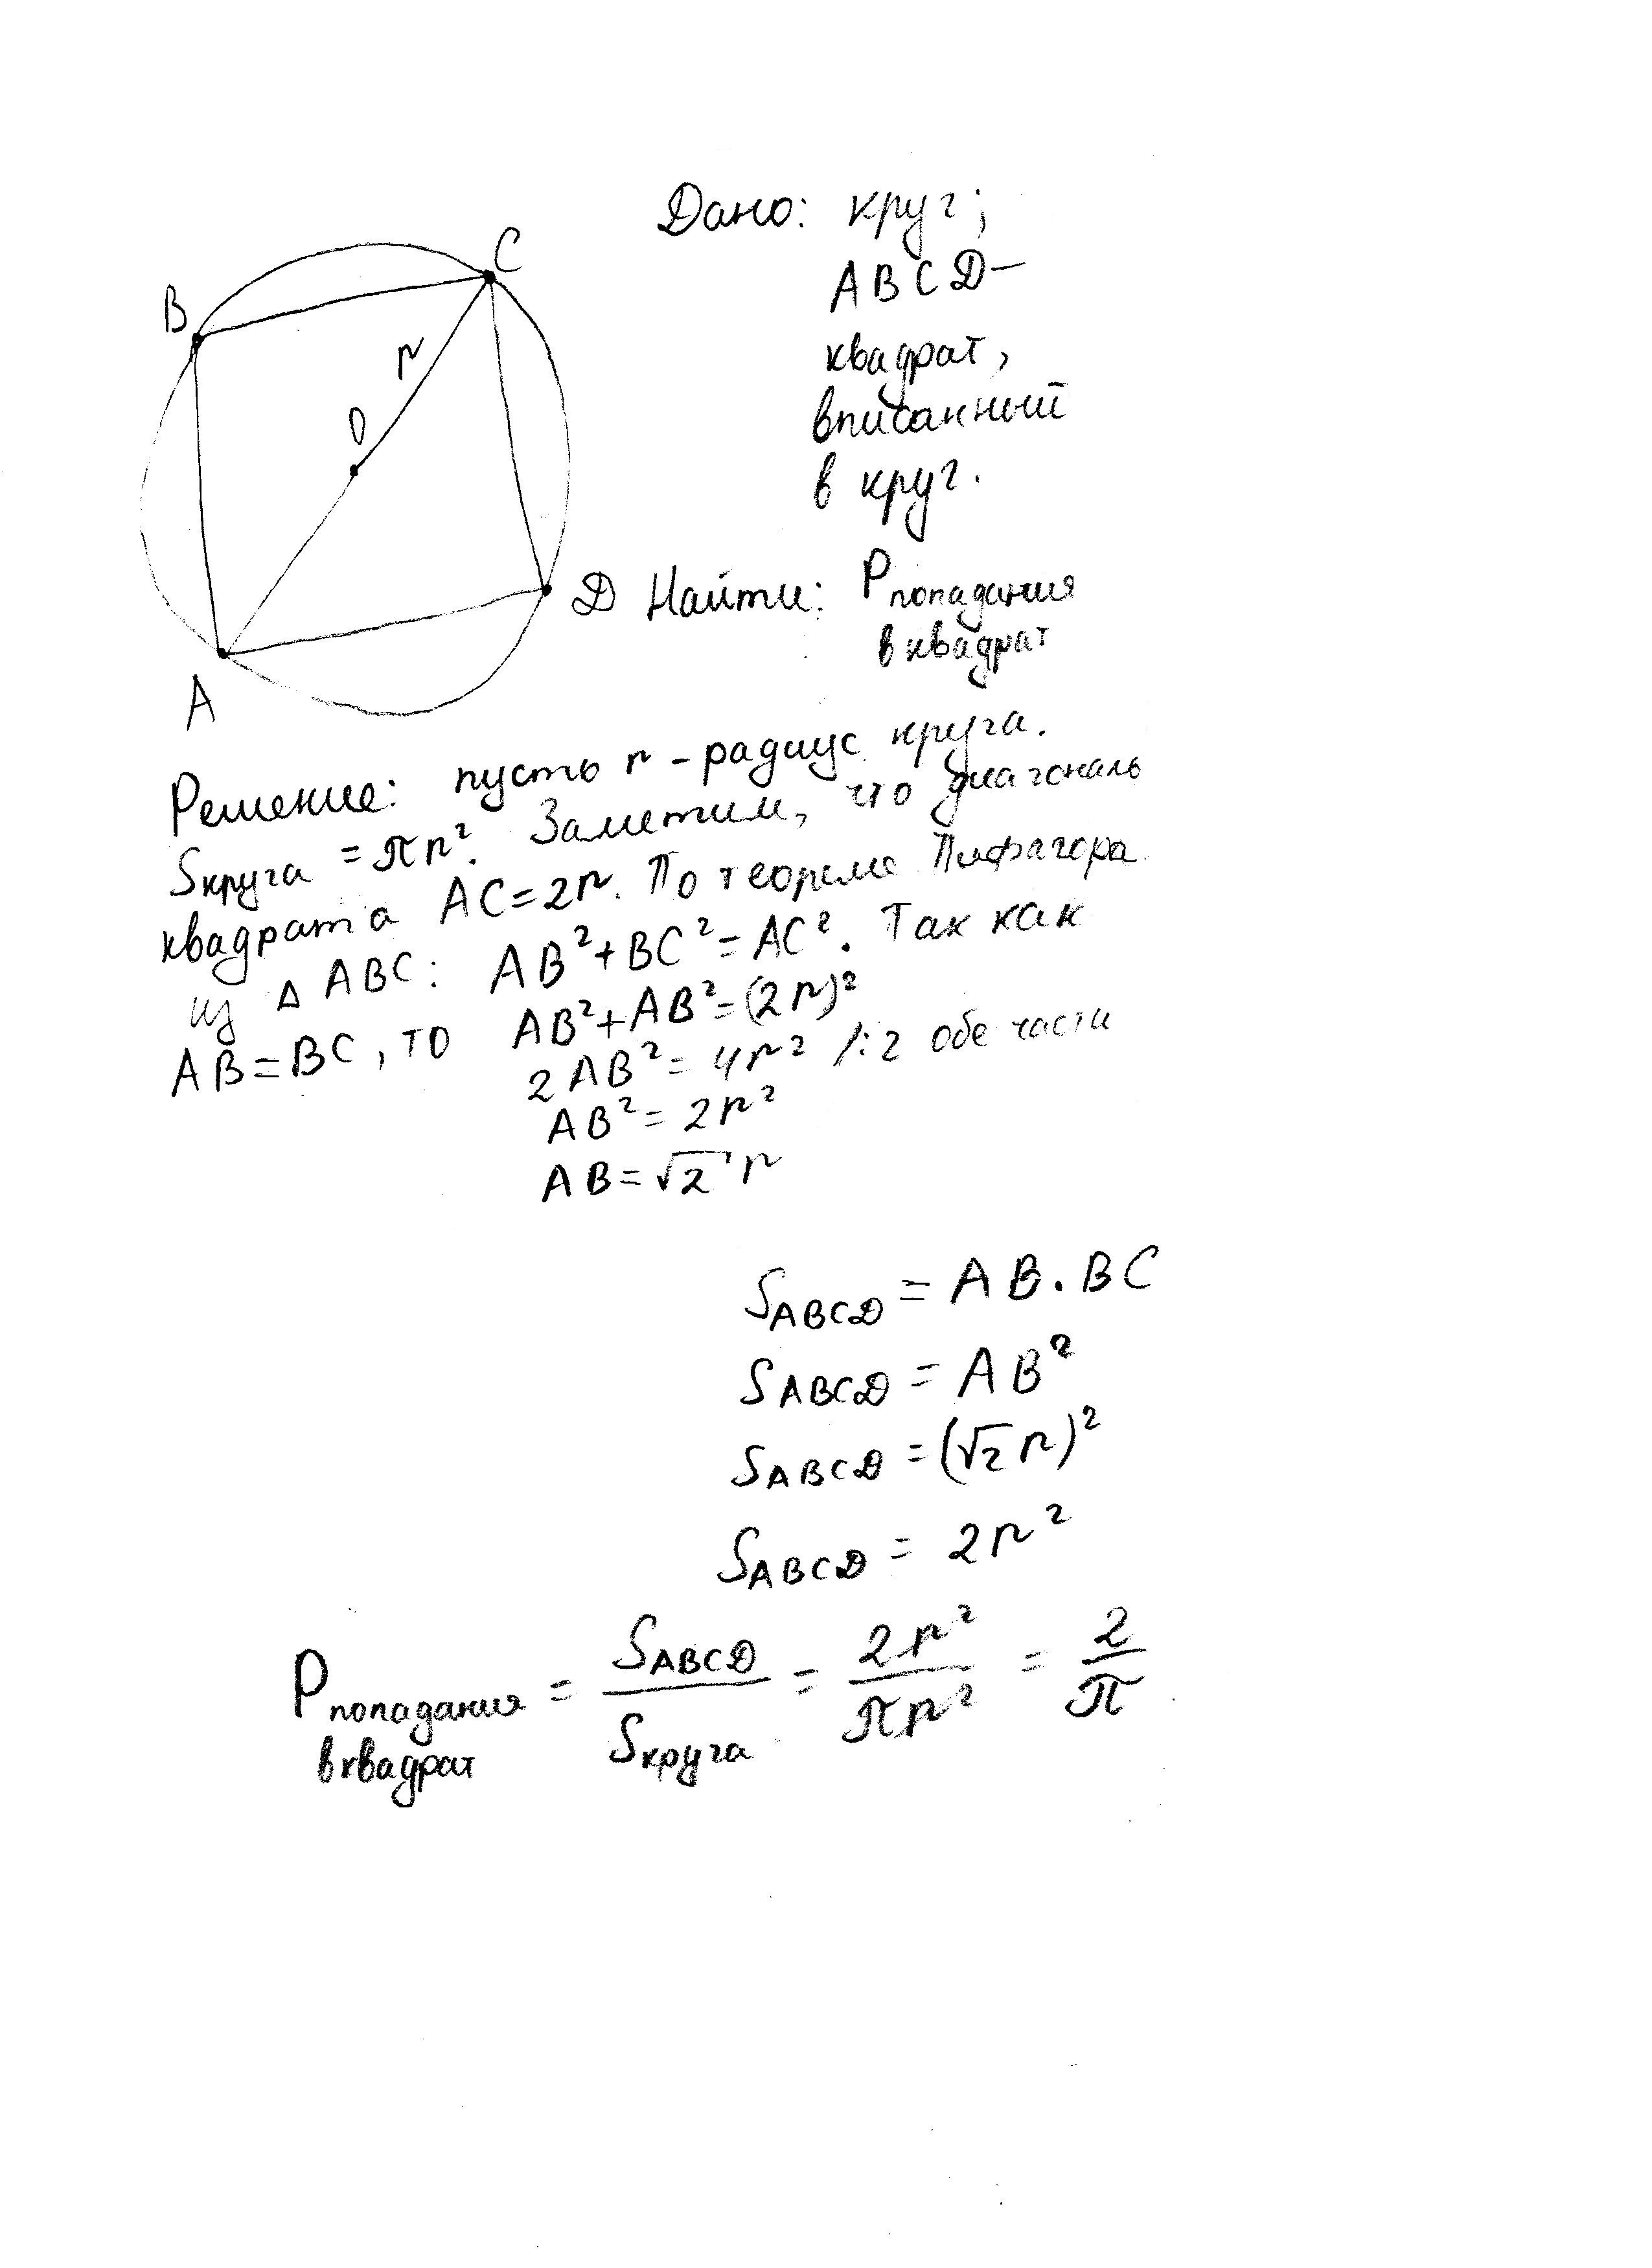 Дано: круг;
ABCD—
квадрат,
вписанный
в круг.
B
C
r
O
A
D
Найти: P попадания
в квадрат
Решение: пусть r - радиус круга.
Sкруга = πr². Заметим, что диагональ
квадрата AC=2r. По теореме Пифагора
из △ABC: AB²+BC²=AC². Так как
AB=BC, то AB²+AB²=(2r)²
2AB²=4r² /:2 обе части
AB²=2r²
AB=√2 r
S ABCD = AB·BC
S ABCD = AB²
S ABCD = (√2 r)²
S ABCD = 2r²
P попадания в квадрат = S ABCD / S круга = 2r² / πr² = 2/π